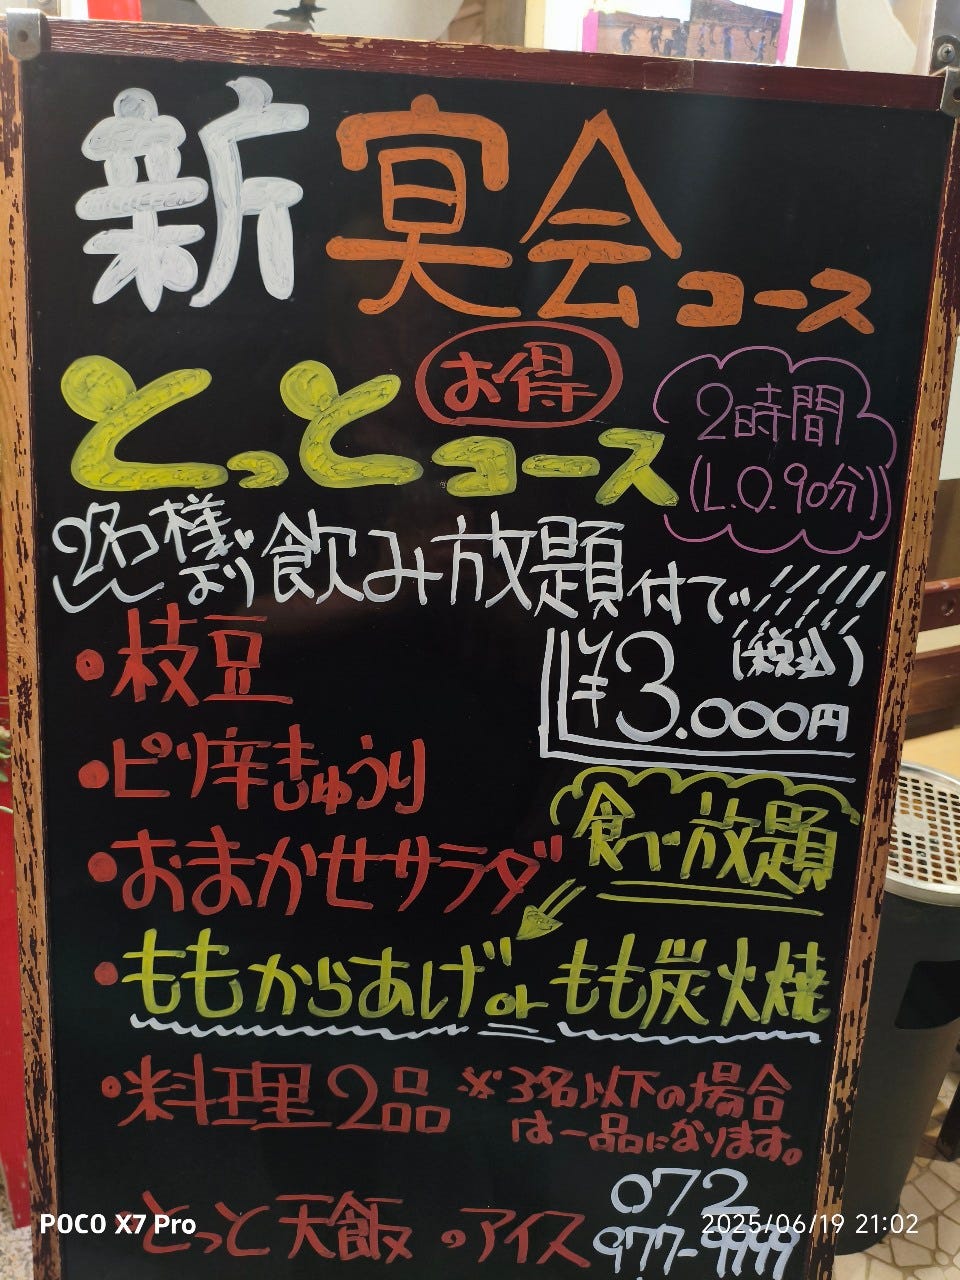 新宴会コース
お得
とっとコース
2時間
(L.O.90分)
2名様より飲み放題付で
(税込)
¥3.000円
・枝豆
・ピリ辛きゅうり
・おまかせサラダ
食べ放題
・ももからあげor もも炭火焼
・料理2品
※3名以下の場合
は一品になります。
・とっと天飯 ・アイス
072
977-9999
POCO X7 Pro
2025/06/19 21:02